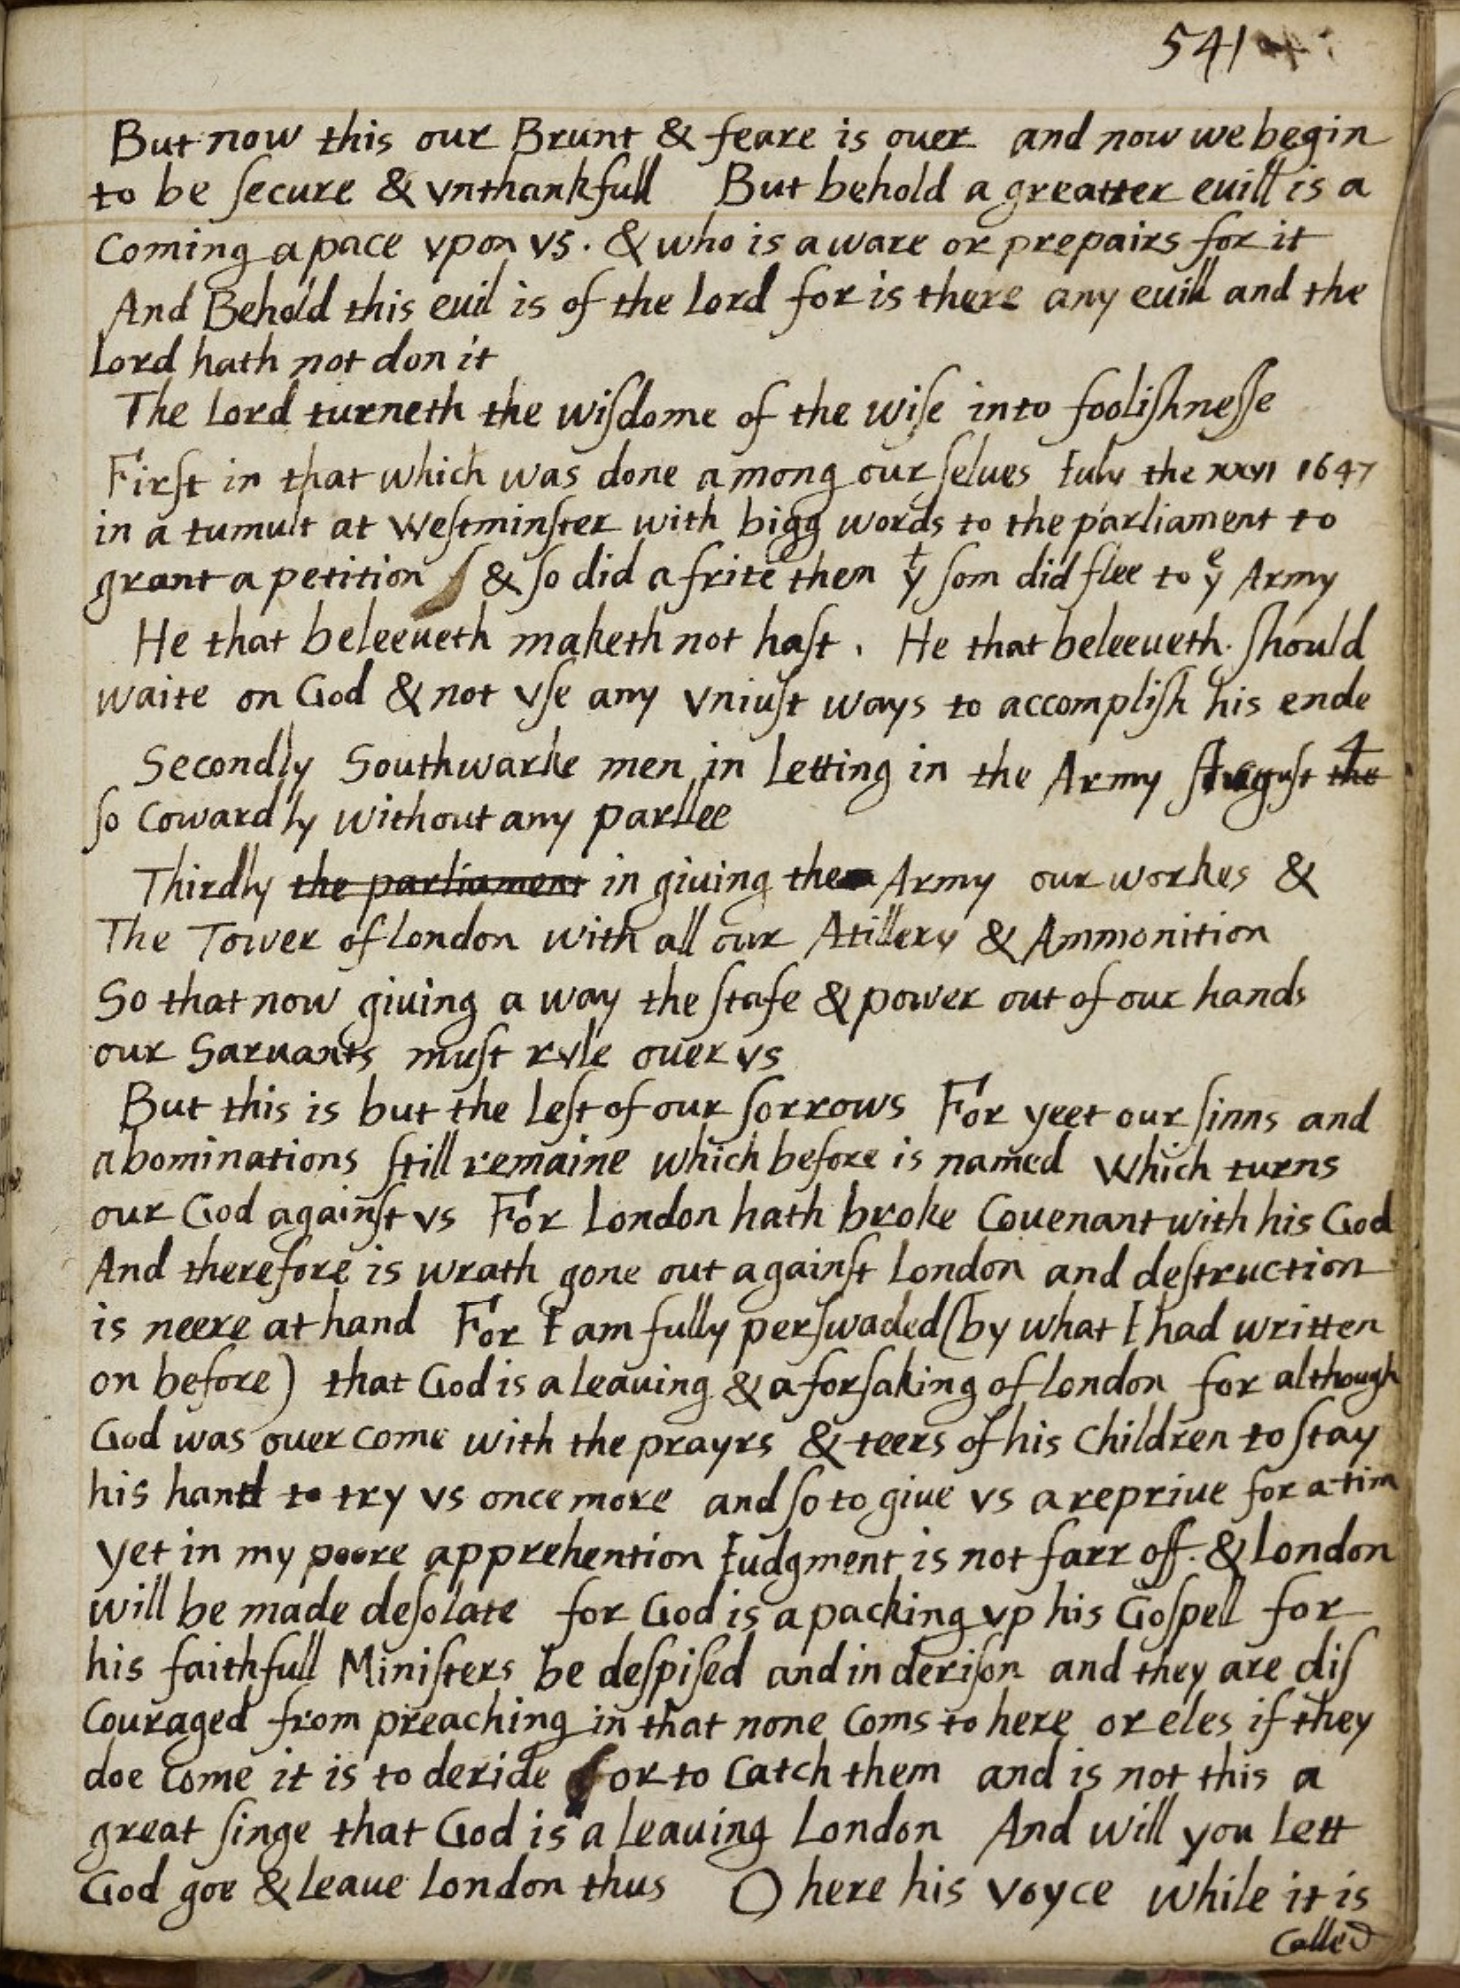 541
But now this our Brunt & feare is ouer and now we begin
to be ſecure & vnthankfull But behold a greatter euill is a
Coming a pace vpon vs. & who is aware or prepairs for it
And Behold this euil is of the Lord for is there any euill and the
Lord hath not don it
The Lord turneth the wiſdome of the wiſe into fooliſhneſſe
Firſt in that which was done among our ſelues Iuly the xxvi 1647
in a tumult at Weſtminſter with bigg words to the parliament to
grant a petition & ſo did a frite them yt ſom did flee to ye Army
He that beleeueth maketh not haſt. He that beleeueth ſhould
waite on God & not vſe any vniuſt ways to accompliſh his ende
Secondly Southwarke men in Letting in the Army Auguſt the 4
ſo Cowardly without any parllee
Thirdly the parliament in giuing the Army our workes &
The Tower of London with all our Atillery & Ammonition
So that now giuing a way the ſtafe & power out of our hands
our Saruants muſt rvle ouer vs
But this is but the Leſt of our ſorrows For yeet our ſinns and
abominations ſtill remaine which before is named Which turns
our God againſt vs For London hath broke Couenant with his God
And therefore is wrath gone out againſt London and deſtruction
is neere at hand For I am fully perſwaded (by what I had written
on before) that God is a leauing & a forſaking of London for although
God was ouer come with the prayrs & teers of his Children to ſtay
his hand to try vs once more and ſo to giue vs a repriue for a tim
yet in my poore apprehention Iudgment is not farr off. & London
will be made deſolate for God is a packing vp his Goſpell for
his faithfull Miniſters be deſpiſed and in deriſon and they are diſ
Couraged from preaching in that none Coms to here or eles if they
doe Come it is to deride or to Catch them and is not this a
great ſinge that God is a leauing London And will you Lett
God goe & leaue London thus O here his voyce while it is
Called